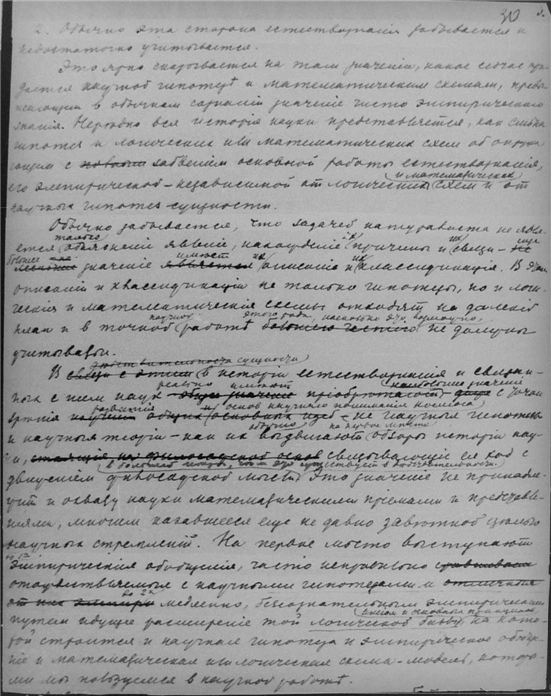 30
2. Обычно эта сторона естествознания забывается и
недостаточно учитывается.
Это ярко сказывается на том значении, какое сейчас при-
дается научной гипотезе и математическим схемам, превы-
шающим в обычном сознании значение чисто эмпирического
знания. Нередко вся история науки представляется, как смена
гипотез и логических или математических схем об окружа-
ющем с забвением основной работы естествознания,
его эмпирической - независимой от логических и математических схем и от
научных гипотез сущности.
Обычно забывается, что задачей натуралиста не явля-
ется только объяснение явлений, нахождение их причины и их связи -
большее значение имеют их описание и их классификация. В этих
описании и классификации не только гипотезы, но и логи-
ческие и математические схемы отходят на далекий
план и в точной научной работе этого рода, насколько это возможно, не должны
учитываться.
В действительности сущности в истории естествознания и связан-
ных с ним наук реально имеют наибольшее значение с точки
зрения развития основ научного понимания космоса не научные гипотезы
и научные теории - как их выдвигают обычно на первое место обзоры истории нау-
ки, связывающие ее ход с
движением философской мысли. Это значение не принадле-
жит и охвату науки математическими приемами и представле-
ниями, многим казавшееся еще не давно заветной целью
научных стремлений. На первое место выступают
эмпирические обобщения, часто неправильно
отождествляемые с научными гипотезами и
медленно, бессознательным эмпирическим
путем идущее расширение той логической базы, на кото-
рой строится и научная гипотеза и эмпирическое обобще-
ние и математическая или логическая схема - модель, которы-
ми мы пользуемся в научной работе.